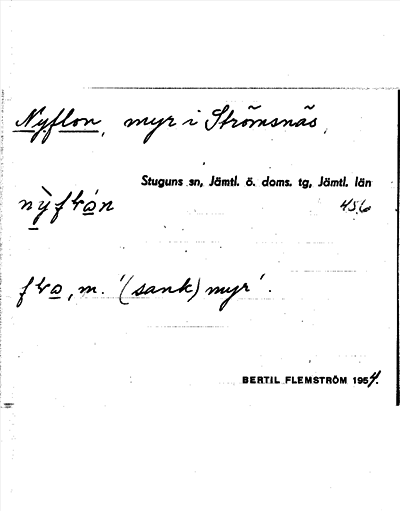 Nyflon, myr i Strömsnäs,
Stuguns sn, Jämtl. ö. doms. tg, Jämtl. län
456
m. '(sank) myr'.
BERTIL FLEMSTRÖM 1954.